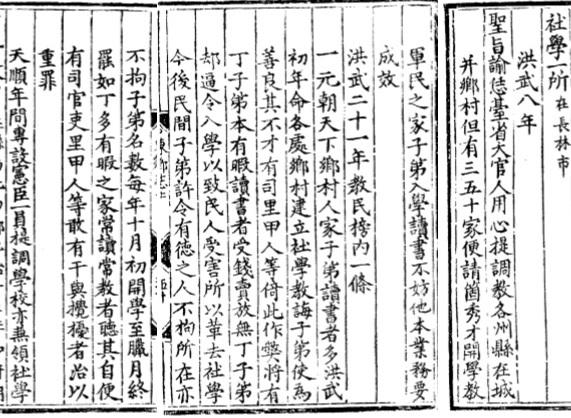 社學一所在長林市
洪武八年
聖旨諭恁臺省大官人用心提調教各州縣在城
并鄉村但有三五十家便請箇秀才開學教
軍民之家子第入學讀書不妨他本業務要
成效
洪武二十一年教民榜內一條
一元朝天下鄉村人家子第讀書者多洪武
初年命各處鄉村建立社學教誨子第使為
善良其不才有司里甲人等倚此作獘將有
丁子第本有暇讀書者受錢賣放無丁子第
却逼令入學以致民人受害所以革去社學
今後民間子第許令有德之人不拘所在亦
不拘子第名數每年十月初開學至臘月終
罷如丁多有暇之家常讀常教者聽其自便
有司官吏里甲人等敢有干與攪擾者治以
重罪
天順年間專設憲臣一員提調學校亦兼領社學